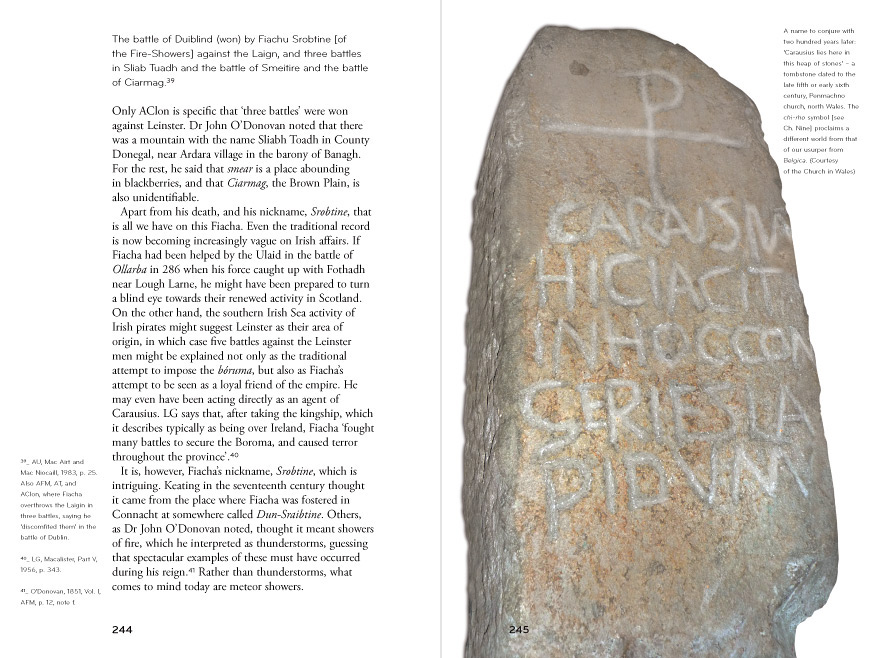 The battle of Duiblind (won) by Fiachu Srobtine [of
the Fire-Showers] against the Laign, and three battles
in Sliab Tuadh and the battle of Smeitire and the battle
of Ciarmag.³⁹
Only AClon is specific that ‘three battles’ were won
against Leinster. Dr John O’Donovan noted that there
was a mountain with the name Sliabh Toadh in County
Donegal, near Ardara village in the barony of Banagh.
For the rest, he said that smear is a place abounding
in blackberries, and that Ciarmag, the Brown Plain, is
also unidentifiable.
Apart from his death, and his nickname, Srobtine, that
is all we have on this Fiacha. Even the traditional record
is now becoming increasingly vague on Irish affairs. If
Fiacha had been helped by the Ulaid in the battle of
Ollarba in 286 when his force caught up with Fothadh
near Lough Larne, he might have been prepared to turn
a blind eye towards their renewed activity in Scotland.
On the other hand, the southern Irish Sea activity of
Irish pirates might suggest Leinster as their area of
origin, in which case five battles against the Leinster
men might be explained not only as the traditional
attempt to impose the bóruma, but also as Fiacha’s
attempt to be seen as a loyal friend of the empire. He
may even have been acting directly as an agent of
Carausius. LG says that, after taking the kingship, which
it describes typically as being over Ireland, Fiacha ‘fought
many battles to secure the Boroma, and caused terror
throughout the province’.⁴⁰
It is, however, Fiacha’s nickname, Srobtine, which is
intriguing. Keating in the seventeenth century thought
it came from the place where Fiacha was fostered in
Connacht at somewhere called Dun-Sraibtine. Others,
as Dr John O’Donovan noted, thought it meant showers
of fire, which he interpreted as thunderstorms, guessing
that spectacular examples of these must have occurred
during his reign.⁴¹ Rather than thunderstorms, what
comes to mind today are meteor showers.
³⁹_ AU, Mac Airt and
Mac Niocaill, 1983, p. 25.
Also AFM, AT, and
AClon, where Fiacha
overthrows the Laigin in
three battles, saying he
‘discomfited them’ in the
battle of Dublin.
⁴⁰_ LG, Macalister, Part V,
1956, p. 343.
⁴¹_ O’Donovan, 1851, Vol. I,
AFM, p. 12, note f.
244
A name to conjure with
two hundred years later:
‘Carausius lies here in
this heap of stones’ – a
tombstone dated to the
late fifth or early sixth
century, Penmachno
church, north Wales. The
chi-rho symbol [see
Ch. Nine] proclaims a
different world from that
of our usurper from
Belgica. (Courtesy
of the Church in Wales)
HICIACIT
INHOCCON
GERIESLA
PIDVM
245